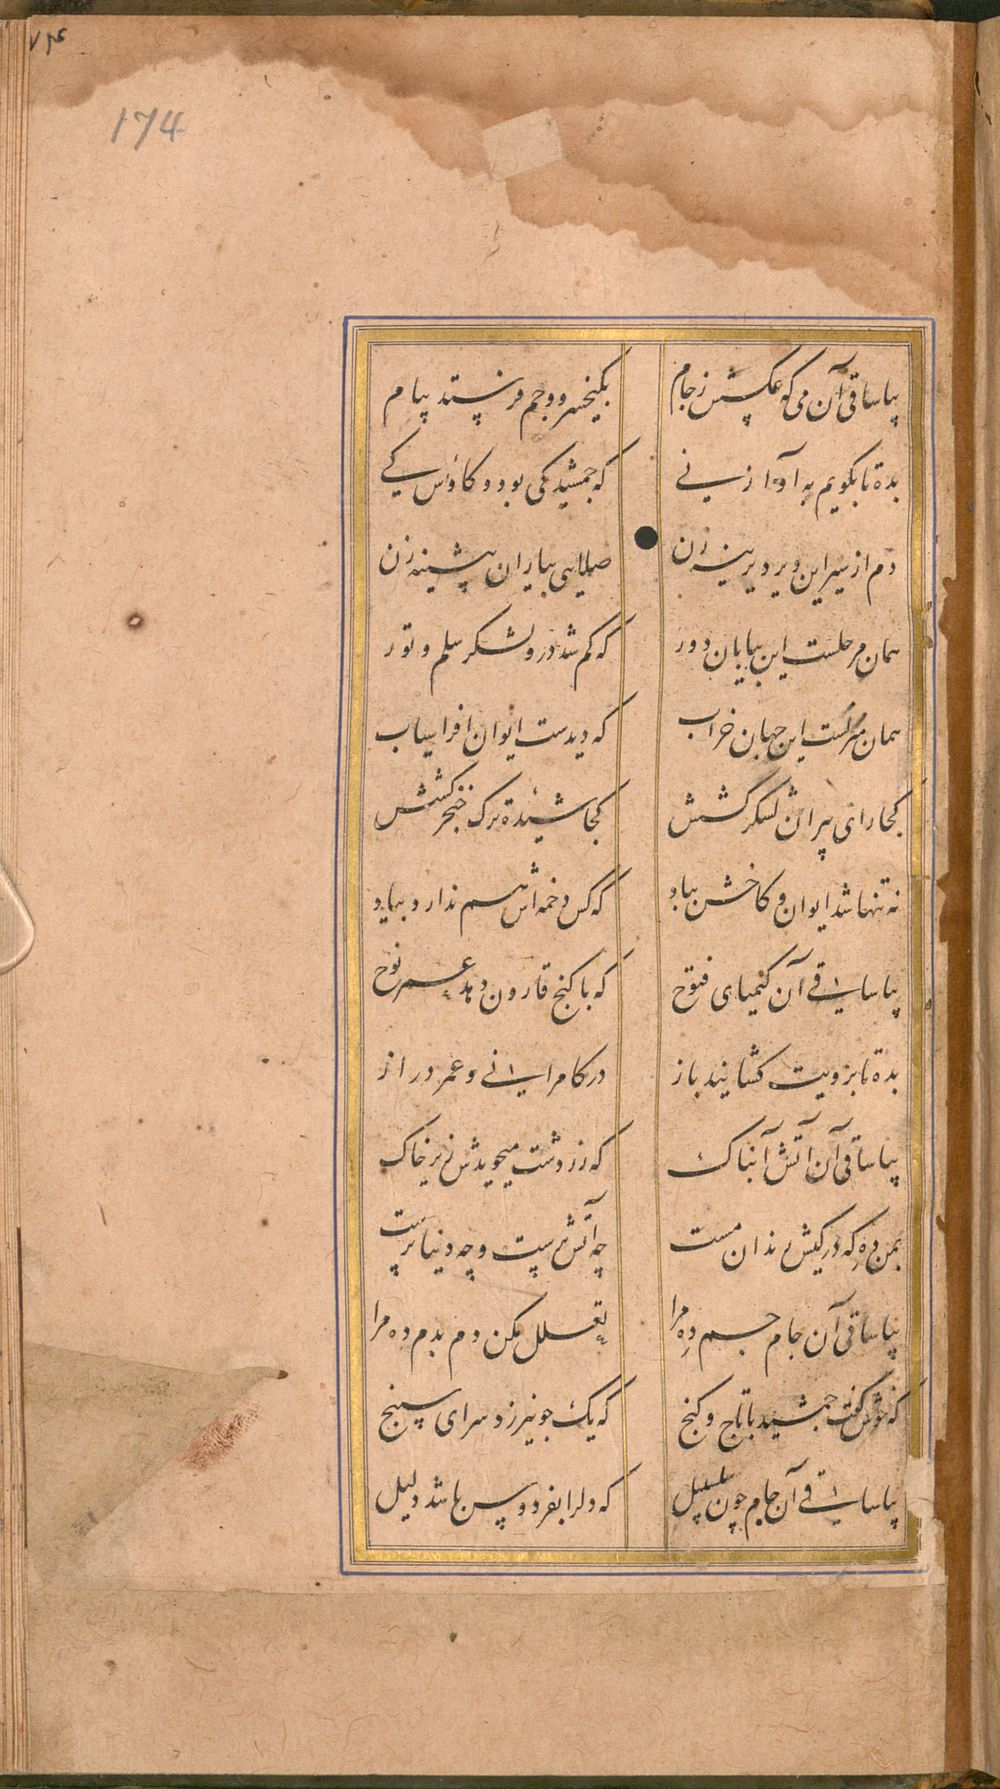 ۷۴
174
بیا ساقی آن می که عکسش ز جام بکیخسرو و جم فرستد پیام
بده تا بگویم به آواز نی که جمشید کی بود و کاوس کی
دم از سیر این دیر دیرینه زن صلایی بیاران پیشینه زن
همان مرحلست این بیابان دور که گم شد درو لشکر سلم و تور
همان منزلست این جهان خراب که دیدست ایوان افراسیاب
کجا رای پیران لشکر کشش کجا شیده ترک خنجر کشش
نه تنها شد ایوان و کاخش بباد که کس دخمه اش هم ندارد بیاد
بیا ساقی آن کیمیای فتوح که با گنج قارون دهد عمر نوح
بده تا برویت کشایند باز در کامرانی و عمر دراز
بیا ساقی آن آتش تابناک که زردشت میجویدش زیر خاک
بمن ده که در کیش رندان مست چه آتش پرست و چه دنیا پرست
بیا ساقی آن جام جم ده مرا تعلل مکن دم بدم ده مرا
که خوش گفت جمشید با تاج و گنج که یک جو نیرزد سرای سپنج
بیا ساقی آن جام چون سلسبیل که دلرا بفردوس باشد دلیل